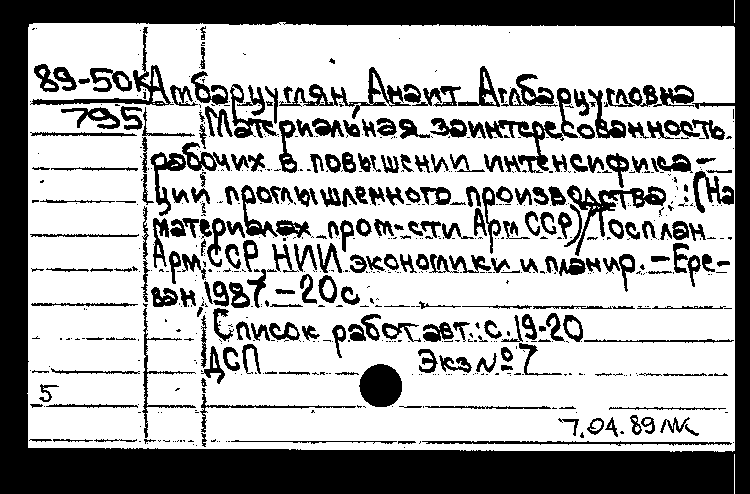 89-50К Амбарцумян, Анаит Амбарцумовна
795
Материальная заинтересованность
рабочих в повышении интенсифика-
ции промышленного производства : (На
материалах пром-сти Арм ССР) / Госплан
Арм ССР, НИИ экономики и планир. - Ере-
ван, 1987. - 20 с.
Список работ авт.: с. 19-20
ДСП Экз № 7
5
7.04.89